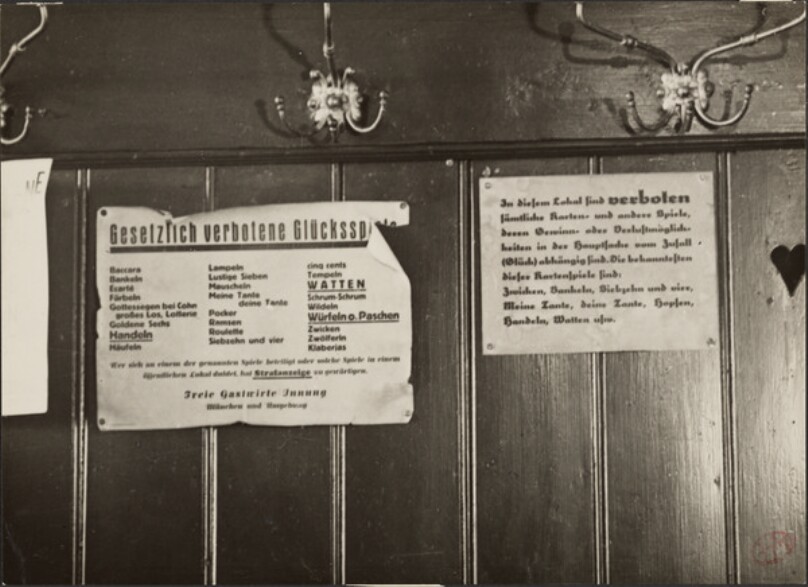 NE
Gesetzlich verbotene Glückssp
Baccara
Bankeln
Ecarté
Färbeln
Gottessegen bei Cohn
großes Los, Lotterie
Goldene Sechs
Handeln
Häufeln
Lampeln
Lustige Sieben
Mauscheln
Meine Tante
deine Tante
Pocker
Ramsen
Roulette
Siebzehn und vier
cinq cents
Tempeln
WATTEN
Schrum-Schrum
Wildeln
Würfeln o. Paschen
Zwicken
Zwölferln
Klaberias
Wer sich an einem der genannten Spiele beteiligt oder solche Spiele in einem
öffentlichen Lokal duldet, hat Strafanzeige zu gewärtigen.
Freie Gastwirte Innung
München und Umgebung
In diesem Lokal sind verboten
sämtliche Karten- und andere Spiele,
deren Gewinn- oder Verlustmöglich-
keiten in der Hauptsache vom Zufall
(Glück) abhängig sind. Die bekanntesten
dieser Kartenspiele sind:
Zwicken, Bankeln, Siebzehn und vier,
Meine Tante, deine Tante, Hopsen,
Handeln, Watten usw.